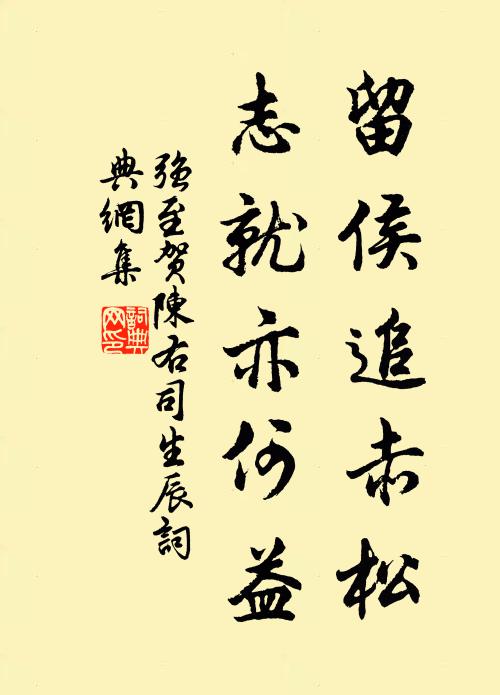 留侯追赤松
志就亦何益
強至賀陳右司生辰詞
典網集
詞典
网印